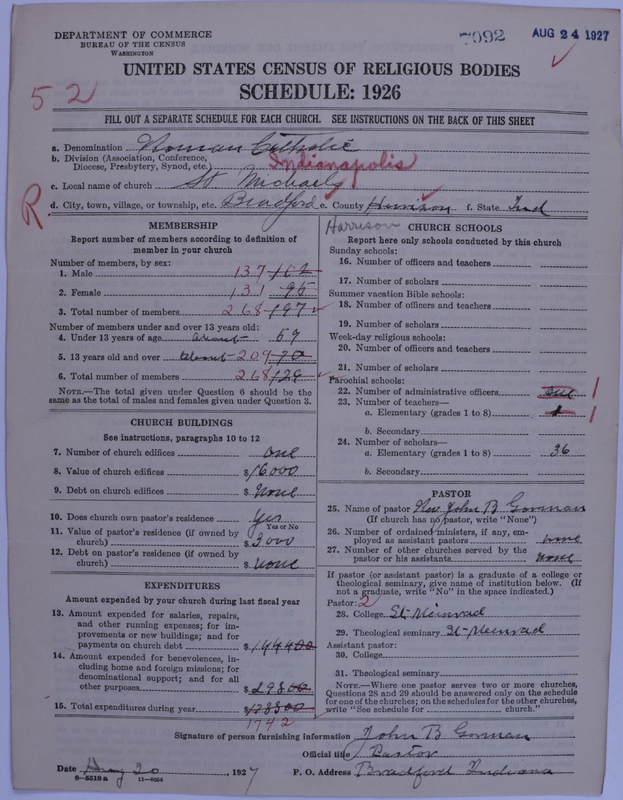 DEPARTMENT OF COMMERCE
BUREAU OF THE CENSUS
WASHINGTON
7092
AUG 24 1927
UNITED STATES CENSUS OF RELIGIOUS BODIES
SCHEDULE: 1926
52
FILL OUT A SEPARATE SCHEDULE FOR EACH CHURCH. SEE INSTRUCTIONS ON THE BACK OF THIS SHEET
a. Denomination Roman Catholic
b. Division (Association, Conference, Diocese, Presbytery, Synod, etc.) Indianapolis
c. Local name of church St Michaels
R
d. City, town, village, or township, etc. Bradford e. County Harrison f. State Ind
Harrison
MEMBERSHIP
Report number of members according to definition of
member in your church
Number of members, by sex:
1. Male 137 102
2. Female 131 95
3. Total number of members 268 197
Number of members under and over 13 years old:
4. Under 13 years of age about 59
5. 13 years old and over about 209 70
6. Total number of members 268 129
NOTE.—The total given under Question 6 should be the
same as the total of males and females given under Question 3.
CHURCH BUILDINGS
See instructions, paragraphs 10 to 12
7. Number of church edifices one
8. Value of church edifices $16000
9. Debt on church edifices $ None
10. Does church own pastor's residence Yes
Yes or No
11. Value of pastor's residence (if owned by
church) $3000
12. Debt on pastor's residence (if owned by
church) $ None
EXPENDITURES
Amount expended by your church during last fiscal year
13. Amount expended for salaries, repairs,
and other running expenses; for im-
provements or new buildings; and for
payments on church debt $144400
14. Amount expended for benevolences, in-
cluding home and foreign missions; for
denominational support; and for all
other purposes $29800
15. Total expenditures during year $
1742
CHURCH SCHOOLS
Report here only schools conducted by this church
Sunday schools:
16. Number of officers and teachers
17. Number of scholars
Summer vacation Bible schools:
18. Number of officers and teachers
19. Number of scholars
Week-day religious schools:
20. Number of officers and teachers
21. Number of scholars
Parochial schools:
22. Number of administrative officers one 1
23. Number of teachers—
a. Elementary (grades 1 to 8) 1
b. Secondary
24. Number of scholars—
a. Elementary (grades 1 to 8) 36
b. Secondary
PASTOR
25. Name of pastor Rev John B Gorman
(If church has no pastor, write "None")
26. Number of ordained ministers, if any, em-
ployed as assistant pastors none
27. Number of other churches served by the
pastor or his assistants none
If pastor (or assistant pastor) is a graduate of a college or
theological seminary, give name of institution below. (If
not a graduate, write "No" in the space indicated.)
Pastor: 2
28. College St-Meinrad
29. Theological seminary St-Meinrad
Assistant pastor:
30. College
31. Theological seminary
NOTE.—Where one pastor serves two or more churches,
Questions 28 and 29 should be answered only on the schedule
for one of the churches; on the schedules for the other churches,
write "See schedule for church."
Signature of person furnishing information John B Gorman
Official title Pastor
Date Aug 20, 1927 P. O. Address Bradford Indiana
8-5518a 11-9054